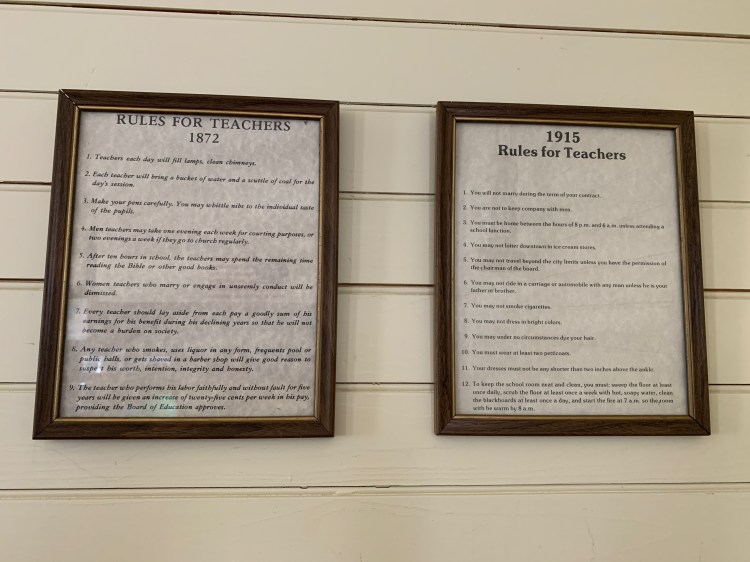 RULES FOR TEACHERS
1872
1. Teachers each day will fill lamps, clean chimneys.
2. Each teacher will bring a bucket of water and a scuttle of coal for the
day's session.
3. Make your pens carefully. You may whittle nibs to the individual taste
of the pupils.
4. Men teachers may take one evening each week for courting purposes, or
two evenings a week if they go to church regularly.
5. After ten hours in school, the teachers may spend the remaining time
reading the Bible or other good books.
6. Women teachers who marry or engage in unseemly conduct will be
dismissed.
7. Every teacher should lay aside from each pay a goodly sum of his
earnings for his benefit during his declining years so that he will not
become a burden on society.
8. Any teacher who smokes, uses liquor in any form, frequents pool or
public halls, or gets shaved in a barber shop will give good reason to
suspect his worth, intention, integrity and honesty.
9. The teacher who performs his labor faithfully and without fault for five
years will be given an increase of twenty-five cents per week in his pay,
providing the Board of Education approves.
1915
Rules for Teachers
1. You will not marry during the term of your contract.
2. You are not to keep company with men.
3. You must be home between the hours of 8 p.m. and 6 a.m. unless attending a
school function.
4. You may not loiter downtown in ice cream stores.
5. You may not travel beyond the city limits unless you have the permission of
the chairman of the board.
6. You may not ride in a carriage or automobile with any man unless he is your
father or brother.
7. You may not smoke cigarettes.
8. You may not dress in bright colors.
9. You may under no circumstances dye your hair.
10. You must wear at least two petticoats.
11. Your dresses must not be any shorter than two inches above the ankle.
12. To keep the school room neat and clean, you must: sweep the floor at least
once daily, scrub the floor at least once a week with hot, soapy water, clean
the blackboards at least once a day, and start the fire at 7 a.m. so the room
will be warm by 8 a.m.